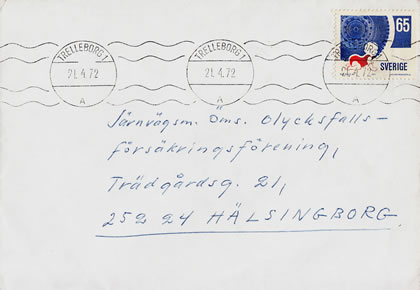 TRELLEBORG 1 TRELLEBORG 1 TRELLEBORG 1 65
21.4.72 21.4.72 21.4.72 SVERIGE
A A A
Järnvägsm. Öms. Olycksfalls-
försäkringsförening,
Trädgårdsg. 21,
252 24 HÄLSINGBORG